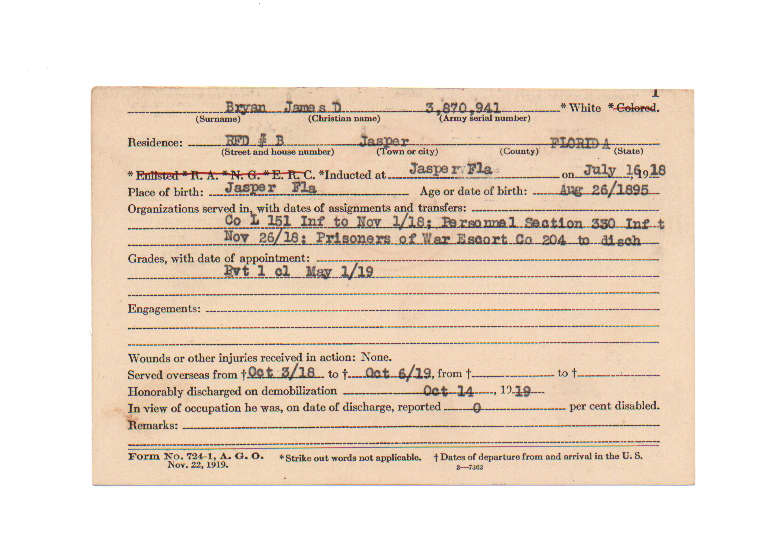 1
Bryan James D 3,870,941 * White * Colored.
(Surname) (Christian name) (Army serial number)
Residence: RFD # B Jasper FLORIDA
(Street and house number) (Town or city) (County) (State)
* Enlisted * R. A. * N. G. * E. R. C. *Inducted at Jasper Fla on July 16, 1918
Place of birth: Jasper Fla Age or date of birth: Aug 26/1895
Organizations served in, with dates of assignments and transfers:
Co L 151 Inf to Nov 1/18; Personnel Section 330 Inf t
Nov 26/18; Prisoners of War Escort Co 204 to disch
Grades, with date of appointment:
Pvt 1 cl May 1/19
Engagements:
Wounds or other injuries received in action: None.
Served overseas from † Oct 3/18 to † Oct 6/19, from † to †
Honorably discharged on demobilization Oct 14, 1919
In view of occupation he was, on date of discharge, reported 0 per cent disabled.
Remarks:
Form No. 724-1, A. G. O. *Strike out words not applicable. † Dates of departure from and arrival in the U. S.
Nov. 22, 1919. 3—7302